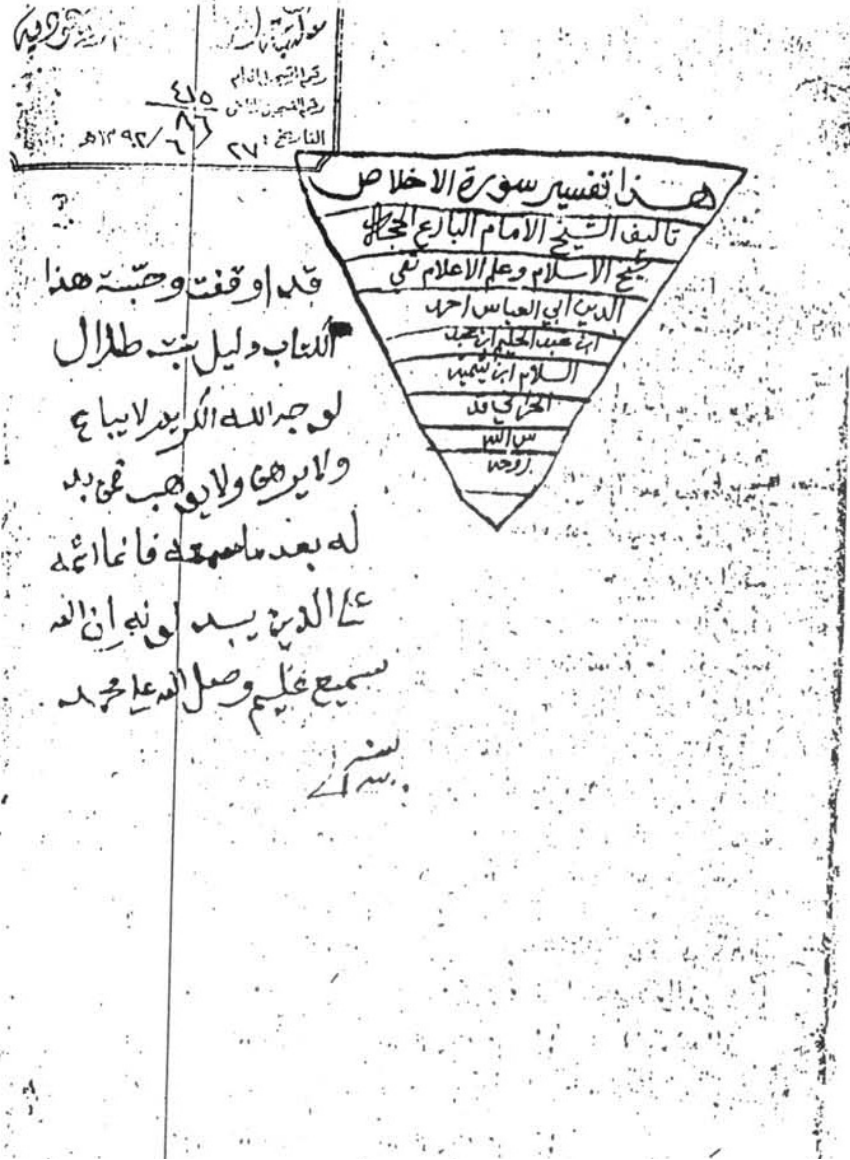 رقم التسجيل العام
رقم التسجيل الخاص ٤١٥
٨٦
التاريخ: ٢٧ / ٦ / ١٣٩٢هـ
هذا تفسير سورة الاخلاص
تاليف الشيخ الامام البارع
شيخ الاسلام وعلم الاعلام تقي
الدين ابي العباس احمد
ابن عبد الحليم ابن عبد
السلام ابن تيمية
الحراني قد
س الله
روحه
قد اوقفت وحبست هذا
الكتاب وليل بنت طلال
لوجه الله الكريم لا يباع
ولا يرهن ولا يوهب فمن بد
له بعد ما سمعه فانما اثمه
على الذين يبدلونه ان الله
سميع عليم وصل الله على محمد